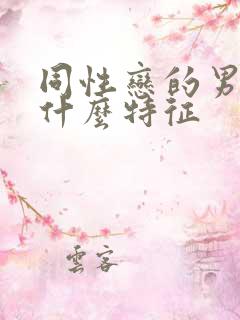 同性戀的男
什麼特征
雲客